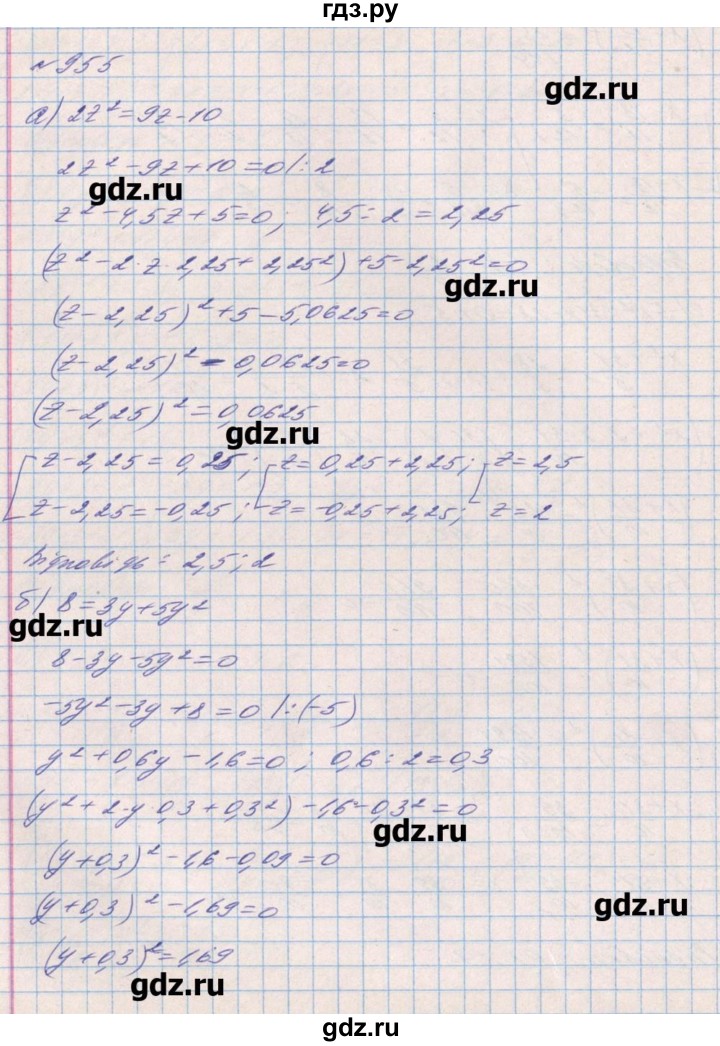 гдз.ру
№955
gdz.ru
а) 2z² = 9z - 10
2z² - 9z + 10 = 0 |: 2
gdz.ru
z² - 4,5z + 5 = 0; 4,5 : 2 = 2,25
(z² - 2·z·2,25 + 2,25²) + 5 - 2,25² = 0
gdz.ru
(z - 2,25)² + 5 - 5,0625 = 0
(z - 2,25)² - 0,0625 = 0
(z - 2,25)² = 0,0625
gdz.ru
[ z - 2,25 = 0,25; [ z = 0,25 + 2,25; [ z = 2,5
z - 2,25 = -0,25; z = -0,25 + 2,25; z = 2
Відповідь: 2,5; 2
б) 8 = 3y + 5y²
gdz.ru
8 - 3y - 5y² = 0
-5y² - 3y + 8 = 0 |: (-5)
y² + 0,6y - 1,6 = 0; 0,6 : 2 = 0,3
(y² + 2·y·0,3 + 0,3²) - 1,6 - 0,3² = 0
gdz.ru
(y + 0,3)² - 1,6 - 0,09 = 0
(y + 0,3)² - 1,69 = 0
gdz.ru
(y + 0,3)² = 1,69
gdz.ru
gdz.ru